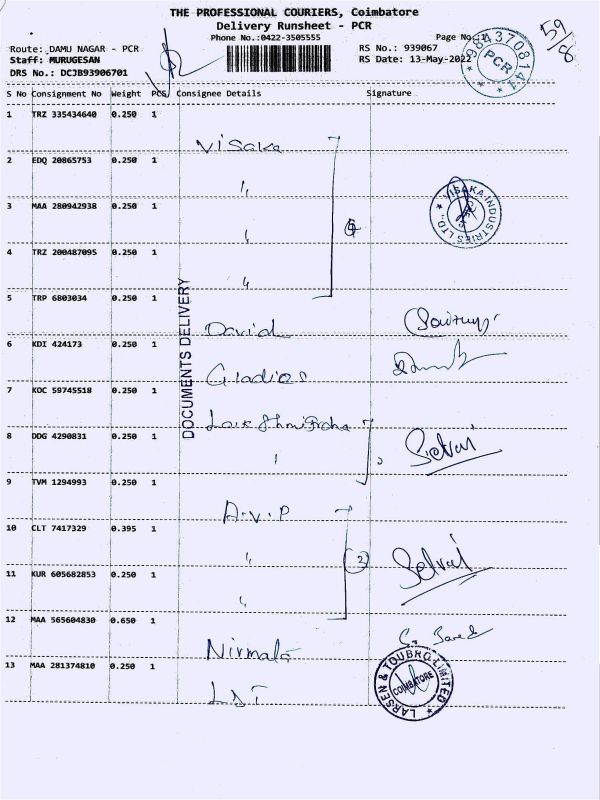 THE PROFESSIONAL COURIERS, Coimbatore
Delivery Runsheet - PCR
Phone No.:0422-3505555
Page No.:1
59/8
Route: DAMU NAGAR - PCR
RS No.: 939067
Staff: MURUGESAN
RS Date: 13-May-2022
DRS No.: DCJB93906701
9843708141
PCR
S No Consignment No Weight PCS Consignee Details Signature
1 TRZ 335434640 0.250 1
Visaka
2 EDQ 20865753 0.250 1
"
3 MAA 280942938 0.250 1
"
VISAKA INDUSTRIES LTD.,
4 TRZ 200487095 0.250 1
"
5 TRP 6803034 0.250 1
David
6 KDI 424173 0.250 1
Gladies
7 KOC 59745518 0.250 1
8 DDG 4290831 0.250 1
"
Selvi
9 TVM 1294993 0.250 1
A.V.P
10 CLT 7417329 0.395 1
"
2
Selvi
11 KUR 605682853 0.250 1
"
12 MAA 565604830 0.650 1
Nirmala
13 MAA 281374810 0.250 1
L&T
LARSEN & TOUBRO LIMITED
COIMBATORE
DOCUMENTS DELIVERY